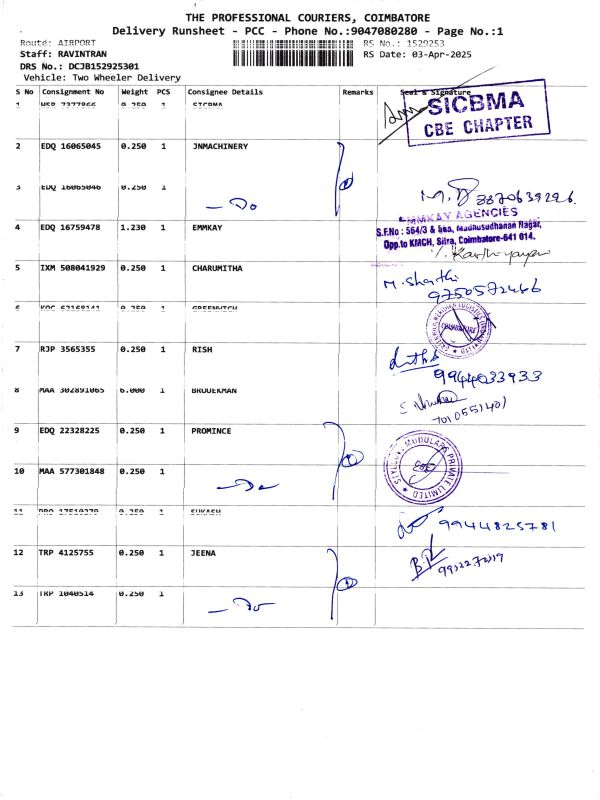 THE PROFESSIONAL COURIERS, COIMBATORE
Delivery Runsheet - PCC - Phone No.:9047080280 - Page No.:1
Route: AIRPORT RS No.: 1529253
Staff: RAVINTRAN RS Date: 03-Apr-2025
DRS No.: DCJB152925301
Vehicle: Two Wheeler Delivery
S No Consignment No Weight PCS Consignee Details Remarks Seal & Signature
1 0.250 1 SICBMA
SICBMA
CBE CHAPTER
2 EDQ 16065045 0.250 1 JNMACHINERY
3 EDQ 16065046 0.250 1
- Do
4 EDQ 16759478 1.230 1 EMMKAY
EMMKAY AGENCIES
S.F.No : 564/3 & Madhusudhanan Nagar,
Opp.to KMCH, Sitra, Coimbatore-641 014.
5 IXM 508041929 0.250 1 CHARUMITHA
M. Sharthi
9750572466
6 0.250 1 GREENWICH
COIMBATORE
7 RJP 3565355 0.250 1 RISH
9944033933
8 MAA 302891065 6.000 1
7010551401
9 EDQ 22328225 0.250 1 PROMINCE
MODULARS PRIVATE LIMITED
10 MAA 577301848 0.250 1
- Do
11 0.250 1
9944825781
12 TRP 4125755 0.250 1 JEENA
13 TRP 1040514 0.250 1
- Do